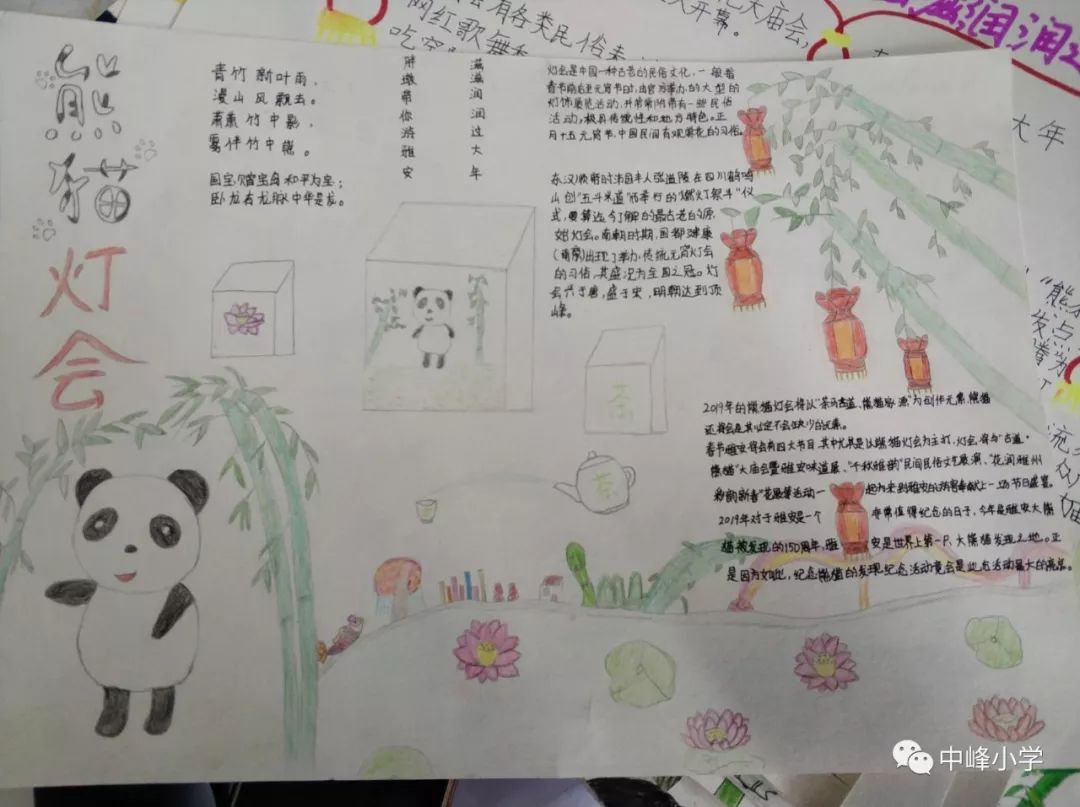 熊猫灯会
青竹新叶雨,
漫山风飘去。
萧萧竹中影,
雾伴竹中熊。
国宝熊猫宝岛和平为宝;
卧龙有龙脉中华是龙。
胖 滋
墩 滋
带 润
你 润
游 过
雅 大
安 年
灯会是中国一种古老的民俗文化,一般指
春节前后至元宵节时,由官方举办,的大型的
灯饰展览活动,并常常附带有一些民俗
活动,极具传统性和地方特色。正
月十五元宵节,中国民间有观赏花的习俗。
东汉顺帝时丰县丰人张道陵在四川鹤鸣
山创"五斗米道"所奉行的"燃灯祭斗"仪
式,要算迄今了解的最古老的原
始灯会。南朝时期,国都建康
(南京)出现了举办,传统元宵灯会
的习俗,其盛况为全国之冠。灯
会兴于唐,盛于宋,明朝达到顶
峰。
茶
茶
2019年的熊猫灯会将以"茶马古道,熊猫家源"为创作元素,熊猫
还将会是其必定不会缺少的元素。
春节雅安将会有四大节目,其中尤其是以熊猫灯会为主打,灯会,将与"古道·
熊猫"大庙会暨雅安味道展、"千秋雅韵"民间民俗文艺展演、"花润雅州
彩韵新春"花展等活动一起为来到雅安的游客奉献上一场节日盛宴。
2019年对于雅安是一个非常值得纪念的日子,今年是雅安大熊
猫被发现的150周年,雅安是世界上第一只大熊猫发现之地。正
是因为如此,纪念熊猫的发现纪念活动竟会是此名活动最大的亮点。
会有各类民俗表
网红歌舞
大开幕。
大庙会,
滋润润
大年
中峰小学